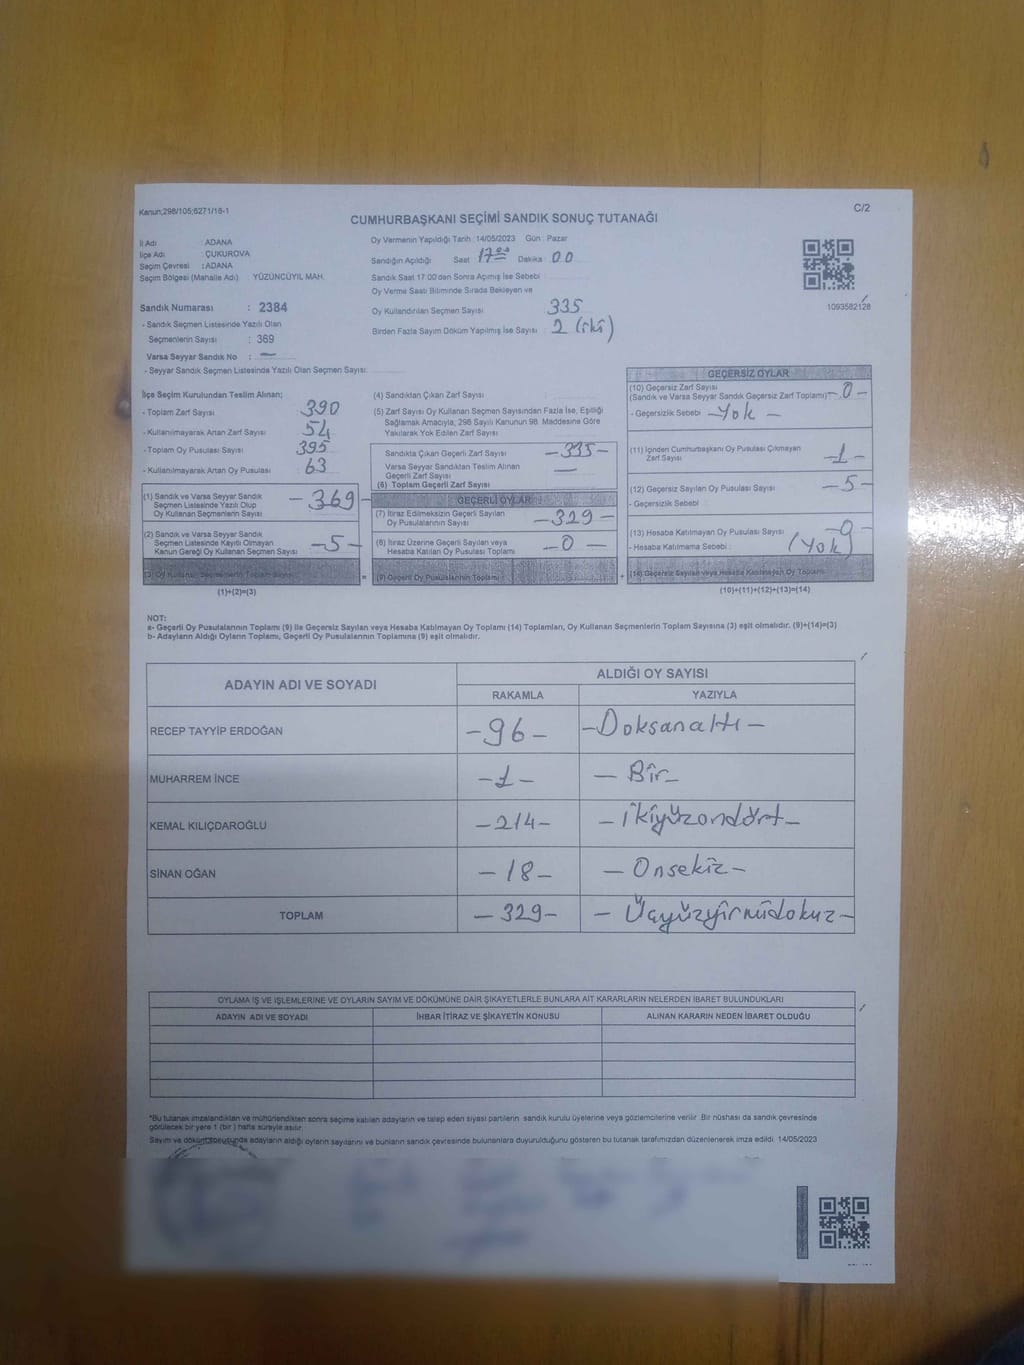 Kanun;298/105;6271/18-1
C/2
CUMHURBAŞKANI SEÇİMİ SANDIK SONUÇ TUTANAĞI
İl Adı : ADANA
İlçe Adı : ÇUKUROVA
Seçim Çevresi : ADANA
Seçim Bölgesi (Mahalle Adı) : YÜZÜNCÜYIL MAH.
Sandık Numarası : 2384
- Sandık Seçmen Listesinde Yazılı Olan
Seçmenlerin Sayısı : 369
Varsa Seyyar Sandık No : —
- Seyyar Sandık Seçmen Listesinde Yazılı Olan Seçmen Sayısı:
Oy Vermenin Yapıldığı Tarih : 14/05/2023 Gün : Pazar
Sandığın Açıldığı Saat 17.00 Dakika : 00
Sandık Saat 17.00'den Sonra Açılmış İse Sebebi :
Oy Verme Saati Bitiminde Sırada Bekleyen ve
Oy Kullandırılan Seçmen Sayısı : 335
Birden Fazla Sayım Döküm Yapılmış İse Sayısı : 2 (iki)
1093582128
İlçe Seçim Kurulundan Teslim Alınan;
- Toplam Zarf Sayısı : 390
- Kullanılmayarak Artan Zarf Sayısı : 54
- Toplam Oy Pusulası Sayısı : 395
- Kullanılmayarak Artan Oy Pusulası : 63
(1) Sandık ve Varsa Seyyar Sandık
Seçmen Listesinde Yazılı Olup
Oy Kullanan Seçmenlerin Sayısı
- 369 -
(2) Sandık ve Varsa Seyyar Sandık
Seçmen Listesinde Kayıtlı Olmayan
Kanun Gereği Oy Kullanan Seçmen Sayısı
- 5 -
(3) Oy Kullanan Seçmenlerin Toplam Sayısı
(1)+(2)=(3)
(4) Sandıktan Çıkan Zarf Sayısı :
(5) Zarf Sayısı Oy Kullanan Seçmen Sayısından Fazla İse, Eşitliği
Sağlamak Amacıyla, 298 Sayılı Kanunun 98. Maddesine Göre
Yakılarak Yok Edilen Zarf Sayısı :
Sandıkta Çıkan Geçerli Zarf Sayısı - 335 -
Varsa Seyyar Sandıktan Teslim Alınan
Geçerli Zarf Sayısı —
(6) Toplam Geçerli Zarf Sayısı
GEÇERLİ OYLAR
(7) İtiraz Edilmeksizin Geçerli Sayılan
Oy Pusulalarının Sayısı
- 329 -
(8) İtiraz Üzerine Geçerli Sayılan veya
Hesaba Katılan Oy Pusulası Toplamı
- 0 -
= (9) Geçerli Oy Pusulalarının Toplamı
GEÇERSİZ OYLAR
(10) Geçersiz Zarf Sayısı
(Sandık ve Varsa Seyyar Sandık Geçersiz Zarf Toplamı) - 0 -
- Geçersizlik Sebebi : - Yok -
(11) İçinden Cumhurbaşkanı Oy Pusulası Çıkmayan
Zarf Sayısı
- 1 -
(12) Geçersiz Sayılan Oy Pusulası Sayısı - 5 -
- Geçersizlik Sebebi :
(13) Hesaba Katılmayan Oy Pusulası Sayısı - 0 -
- Hesaba Katılmama Sebebi : (Yok)
+ (14) Geçersiz Sayılan veya Hesaba Katılmayan Oy Toplamı
(10)+(11)+(12)+(13)=(14)
NOT:
a- Geçerli Oy Pusulalarının Toplamı (9) ile Geçersiz Sayılan veya Hesaba Katılmayan Oy Toplamı (14) Toplamları, Oy Kullanan Seçmenlerin Toplam Sayısına (3) eşit olmalıdır. (9)+(14)=(3)
b- Adayların Aldığı Oyların Toplamı, Geçerli Oy Pusulalarının Toplamına (9) eşit olmalıdır.
ADAYIN ADI VE SOYADI
ALDIĞI OY SAYISI
RAKAMLA YAZIYLA
RECEP TAYYİP ERDOĞAN - 96 - - Doksanaltı -
MUHARREM İNCE - 1 - - Bir -
KEMAL KILIÇDAROĞLU - 214 - - ikiyüzondört -
SİNAN OĞAN - 18 - - Onsekiz -
TOPLAM - 329 - - Üçyüzyirmidokuz -
OYLAMA İŞ VE İŞLEMLERİNE VE OYLARIN SAYIM VE DÖKÜMÜNE DAİR ŞİKAYETLERLE BUNLARA AİT KARARLARIN NELERDEN İBARET BULUNDUKLARI
ADAYIN ADI VE SOYADI İHBAR İTİRAZ VE ŞİKAYETİN KONUSU ALINAN KARARIN NEDEN İBARET OLDUĞU
*Bu tutanak imzalandıktan ve mühürlendikten sonra seçime katılan adayların ve talep eden siyasi partilerin sandık kurulu üyelerine veya gözlemcilerine verilir. Bir nüshası da sandık çevresinde
görülecek bir yere 1 (bir) hafta süreyle asılır.
Sayım ve döküm sonucunda adayların aldığı oyların sayılarını ve bunların sandık çevresinde bulunanlara duyurulduğunu gösteren bu tutanak tarafımızdan düzenlenerek imza edildi. 14/05/2023